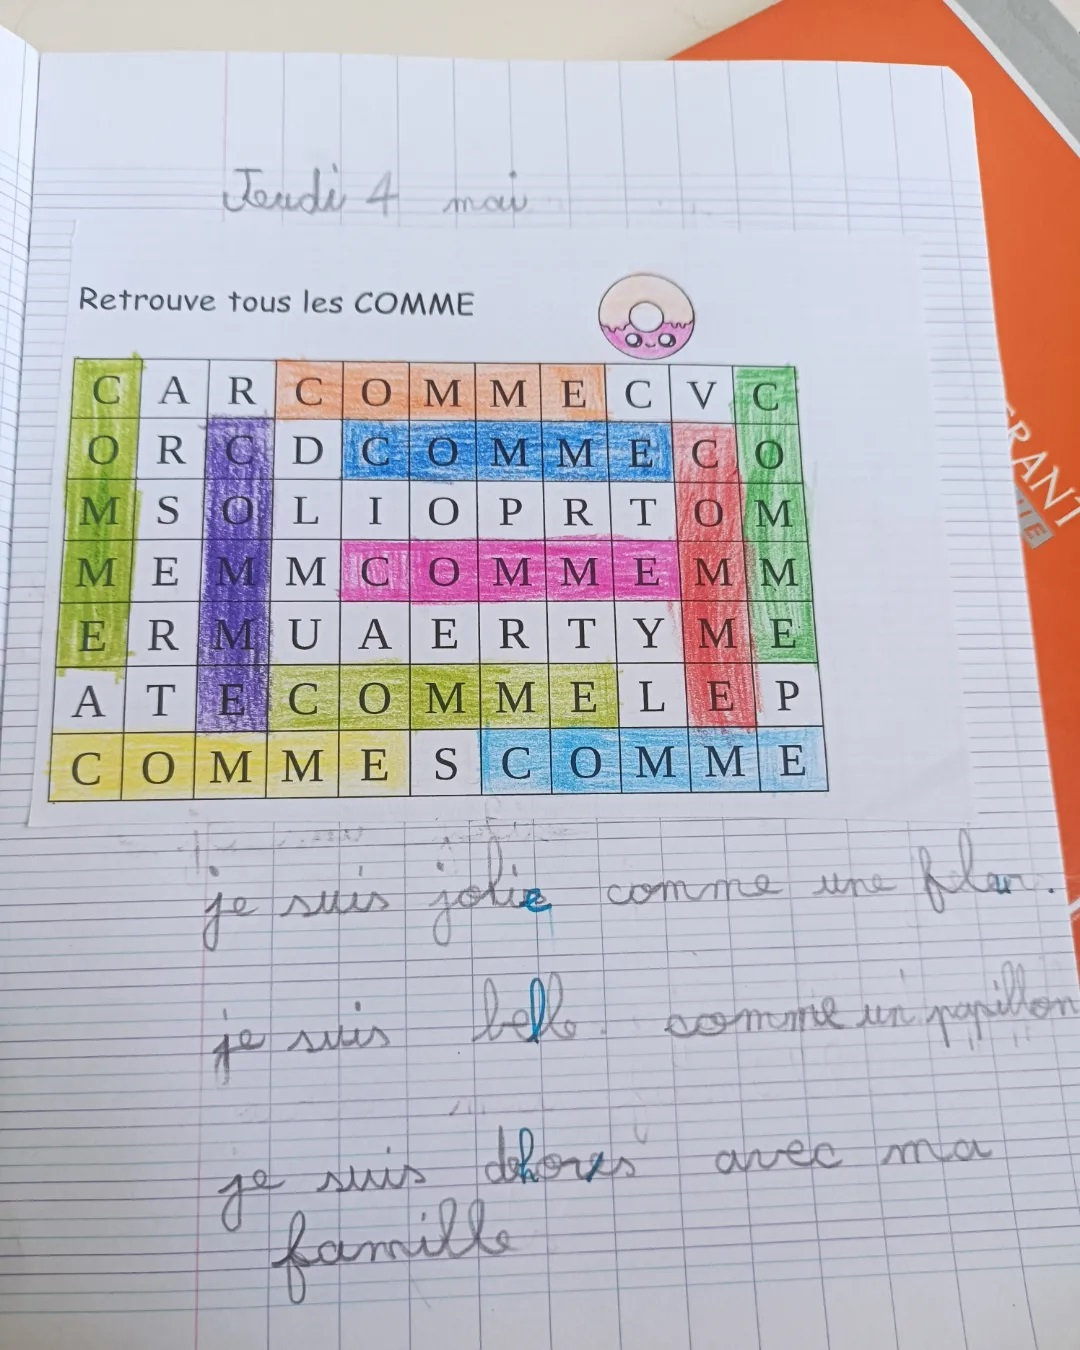 Jeudi 4 mai
Retrouve tous les COMME
C A R C O M M E C V C
O R C D C O M M E C O
M S O L I O P R T O M
M E M M C O M M E M M
E R M U A E R T Y M E
A T E C O M M E L E P
C O M M E S C O M M E
je suis jolie comme une
je suis belle comme un papillon
je suis dehors avec ma
famille